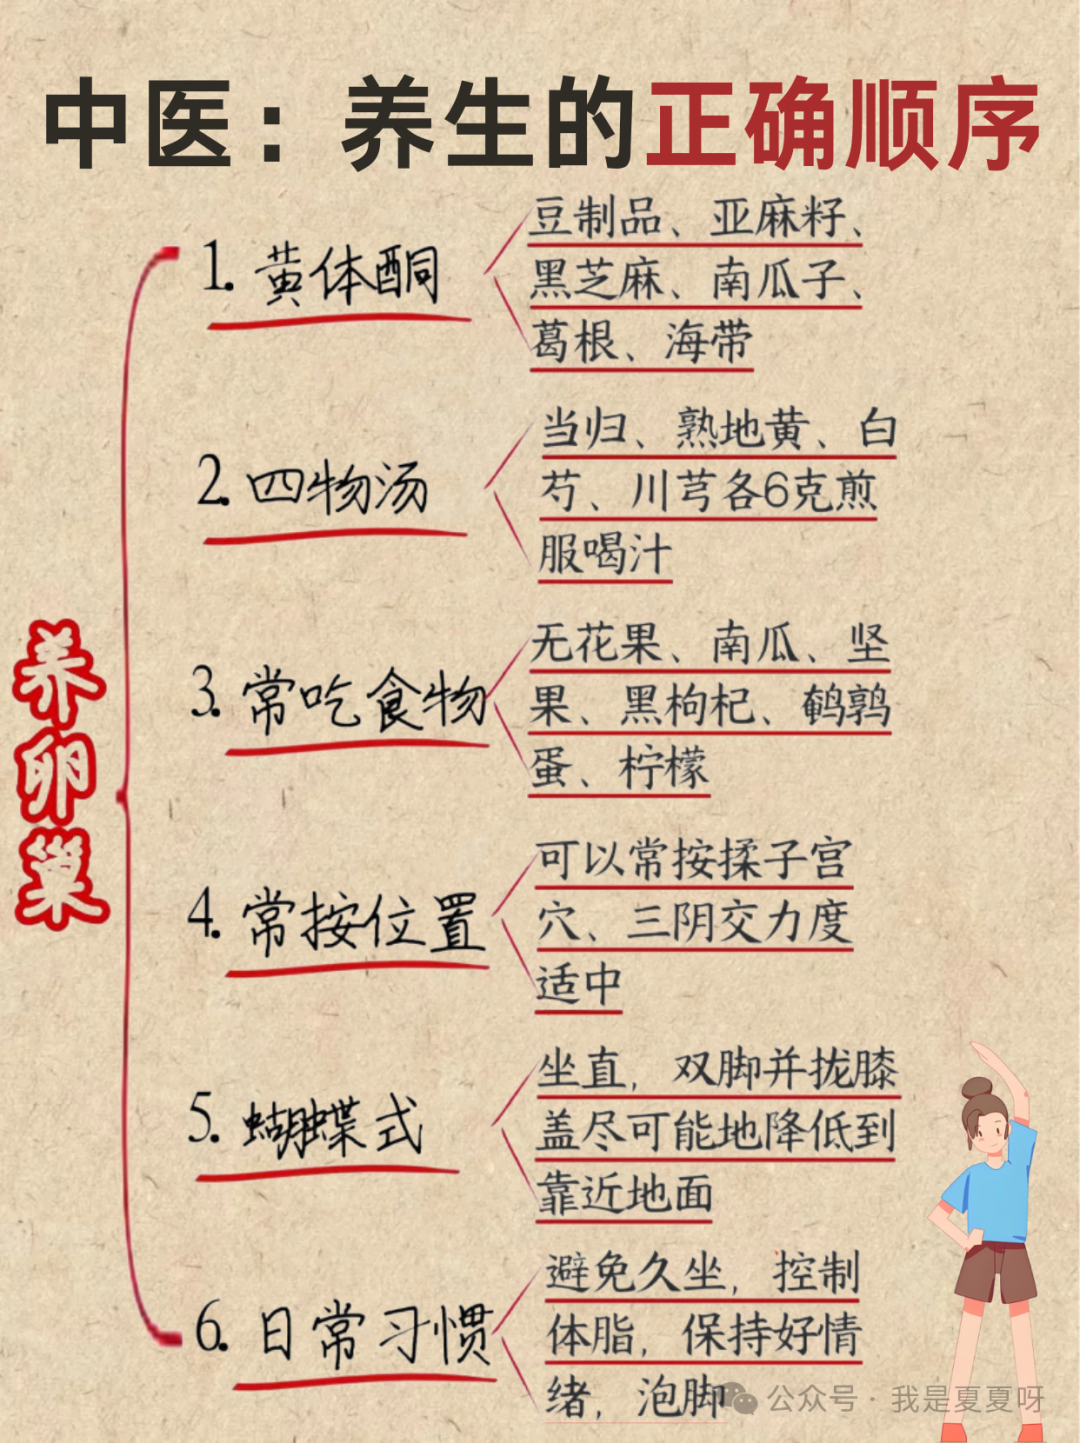 中医：养生的正确顺序
养卵巢
1. 黄体酮
豆制品、亚麻籽、
黑芝麻、南瓜子、
葛根、海带
2. 四物汤
当归、熟地黄、白
芍、川芎各6克煎
服喝汁
3. 常吃食物
无花果、南瓜、坚
果、黑枸杞、鹌鹑
蛋、柠檬
4. 常按位置
可以常按揉子宫
穴、三阴交力度
适中
5. 蝴蝶式
坐直，双脚并拢膝
盖尽可能地降低到
靠近地面
6. 日常习惯
避免久坐，控制
体脂，保持好情
绪，泡脚
公众号·我是夏夏呀